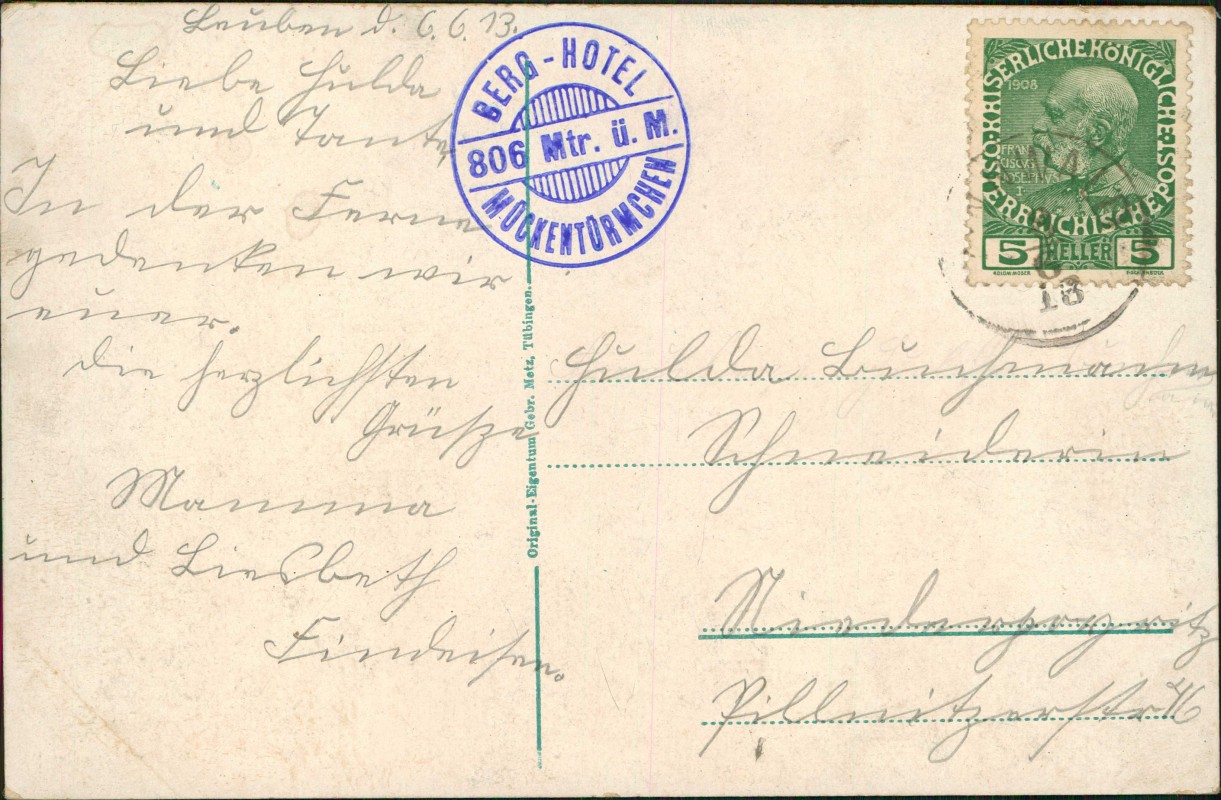 Leuben d. 6.6.13.
Liebe Hulda
und Tante
In der Ferne
gedenken wir
euer.
die herzlichsten
Grüsze
Mamma
und Liesbeth
Findeisen.
BERG-HOTEL
806 Mtr. ü. M.
MÜCKENTÜRMCHEN
Original-Eigentum Gebr. Metz, Tübingen.
KAISERLICHEKÖNIGLICHE
ÖSTERREICHISCHE POST
1908
FRAN
CISCVS
IOSEPHVS
I
5 HELLER 5
KOLOM.MOSER
13
Hulda
Schneiderin
Niederpoyritz
Pillnitzerstr